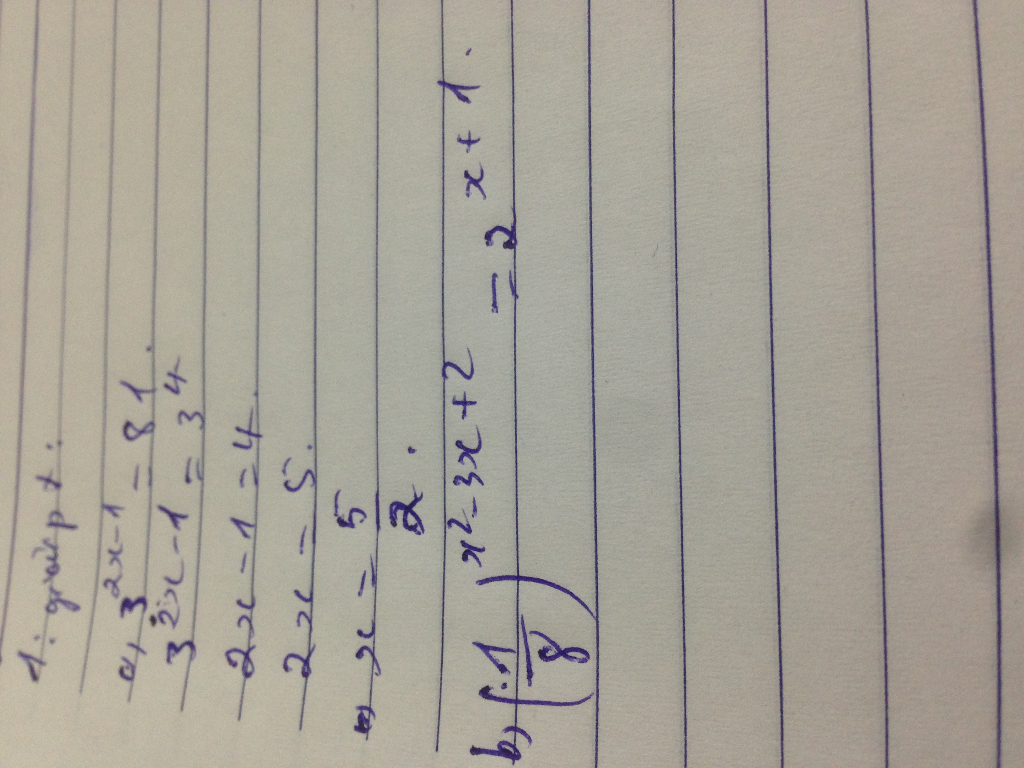 1: giải pt:
a, 3^{2x-1} = 81.
3^{2x-1} = 3^4
2x - 1 = 4.
2x = 5.
x = \frac{5}{2}.
b, (\frac{1}{8})^{x^2-3x+2} = 2^{x+1}.